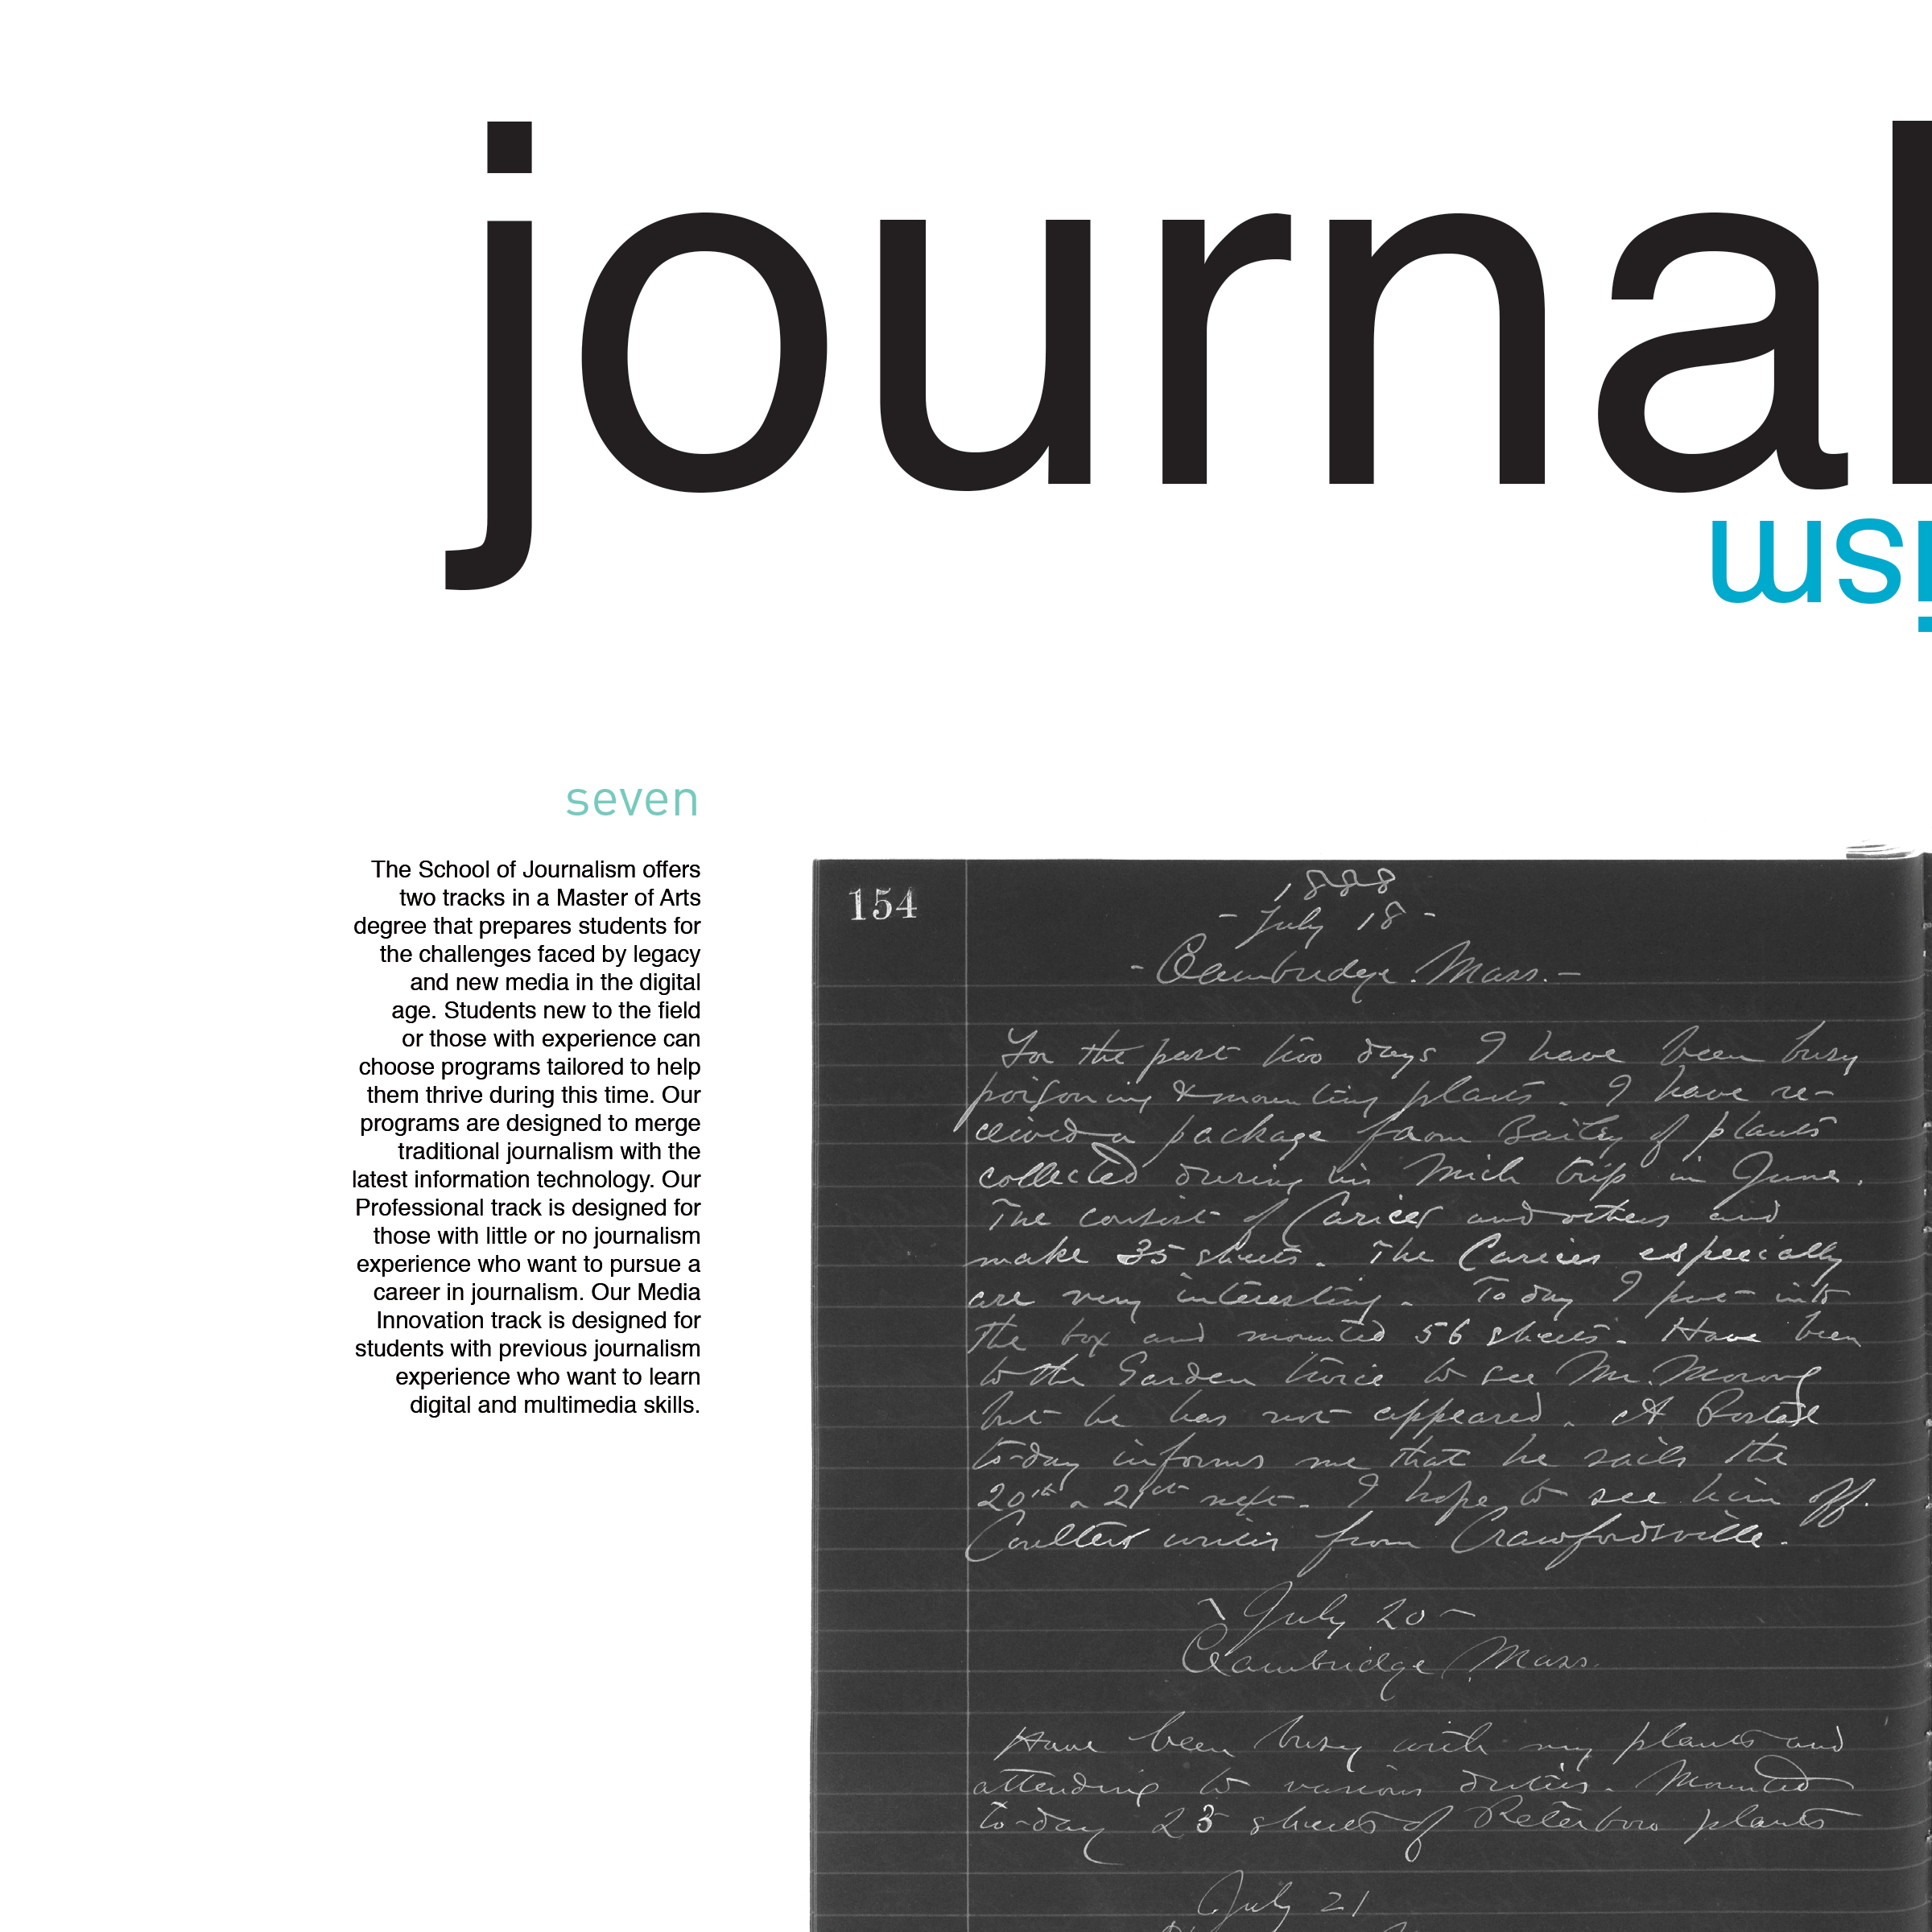 journal
ism
seven
The School of Journalism offers
two tracks in a Master of Arts
degree that prepares students for
the challenges faced by legacy
and new media in the digital
age. Students new to the field
or those with experience can
choose programs tailored to help
them thrive during this time. Our
programs are designed to merge
traditional journalism with the
latest information technology. Our
Professional track is designed for
those with little or no journalism
experience who want to pursue a
career in journalism. Our Media
Innovation track is designed for
students with previous journalism
experience who want to learn
digital and multimedia skills.
154
1888
- July 18 -
- Cambridge. Mass. -
For the past two days I have been busy
poisoning & mounting plants. I have re-
ceived a package from Bailey of plants
collected during his Mich trip in June.
The consist of Carices and others and
make 35 sheets. The Carices especially
are very interesting. To day I put into
the box and mounted 56 sheets. Have been
to the Garden twice to see Mr. Morong
but he has not appeared. A Postal
to-day informs me that he sails the
20th a 21st next. I hope to see him off.
Coulter writes from Crawfordsville.
July 20 -
Cambridge, Mass.
Have been busy with my plants and
attending to various duties. Mounted
to-day 23 sheets of Peterboro plants
July 21